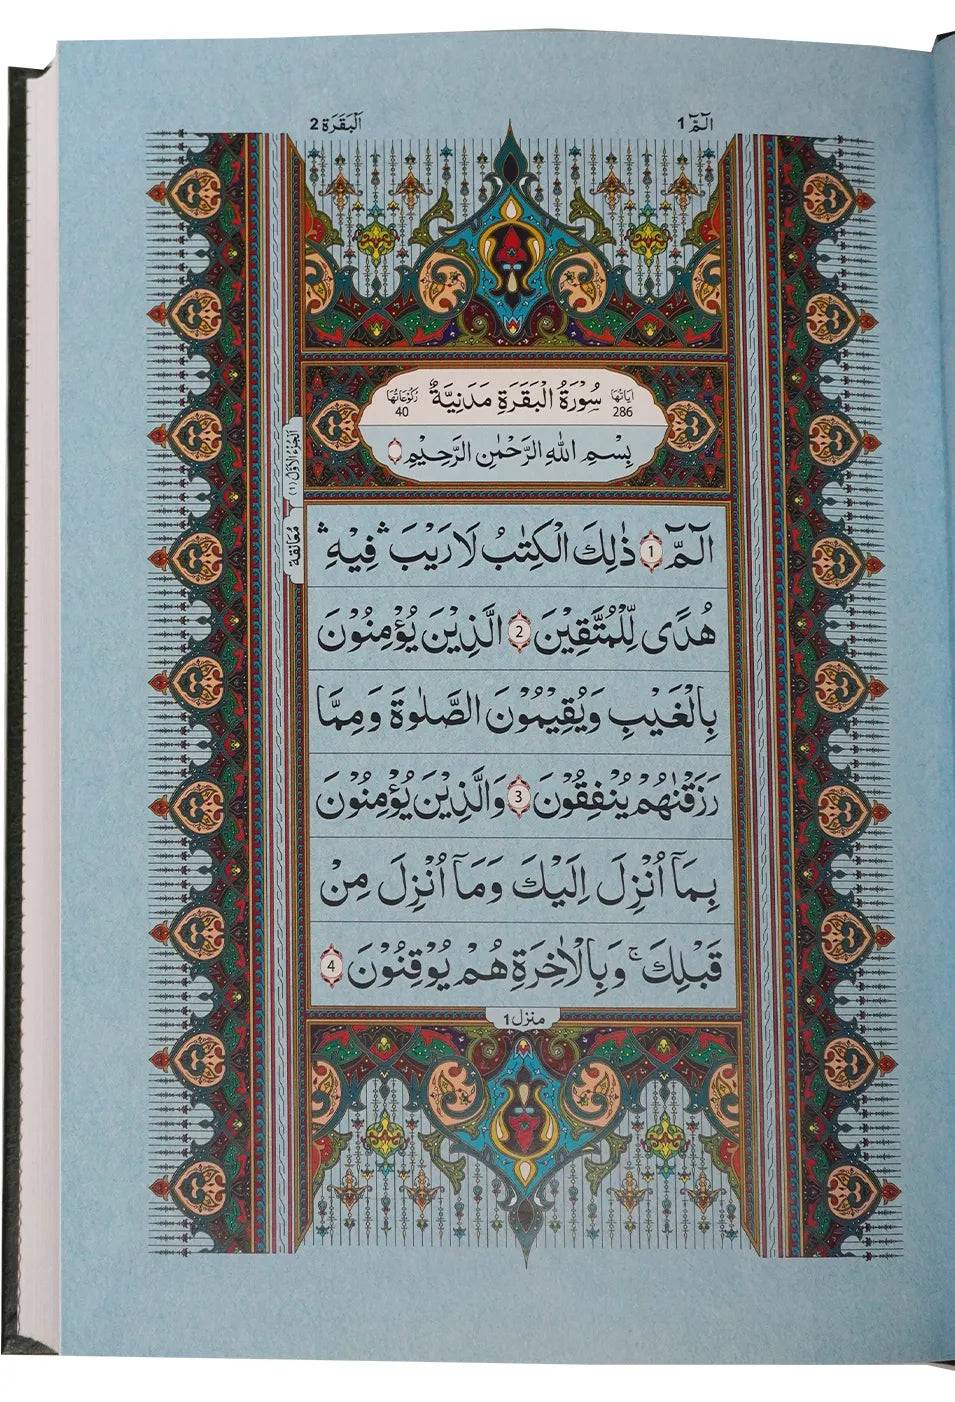 الٓمّٓ 1
اَلْبَقَرَة 2
اٰيَاتُهَا 286
سُوْرَةُ الْبَقَرَةِ مَدَنِيَّةٌ
رُكُوْعَاتُهَا 40
بِسْمِ اللّٰهِ الرَّحْمٰنِ الرَّحِيْمِ
الٓمّٓ 1 ذٰلِكَ الْكِتٰبُ لَا رَيْبَ ۛ فِيْهِ ۛ
هُدًى لِّلْمُتَّقِيْنَ 2 الَّذِيْنَ يُؤْمِنُوْنَ
بِالْغَيْبِ وَيُقِيْمُوْنَ الصَّلٰوةَ وَمِمَّا
رَزَقْنٰهُمْ يُنْفِقُوْنَ 3 وَالَّذِيْنَ يُؤْمِنُوْنَ
بِمَآ اُنْزِلَ اِلَيْكَ وَمَآ اُنْزِلَ مِنْ
قَبْلِكَ ۚ وَبِالْاٰخِرَةِ هُمْ يُوْقِنُوْنَ 4
اَلْجُزْءُ الْاَوَّلُ (١)
مُعَانقة
منزل 1